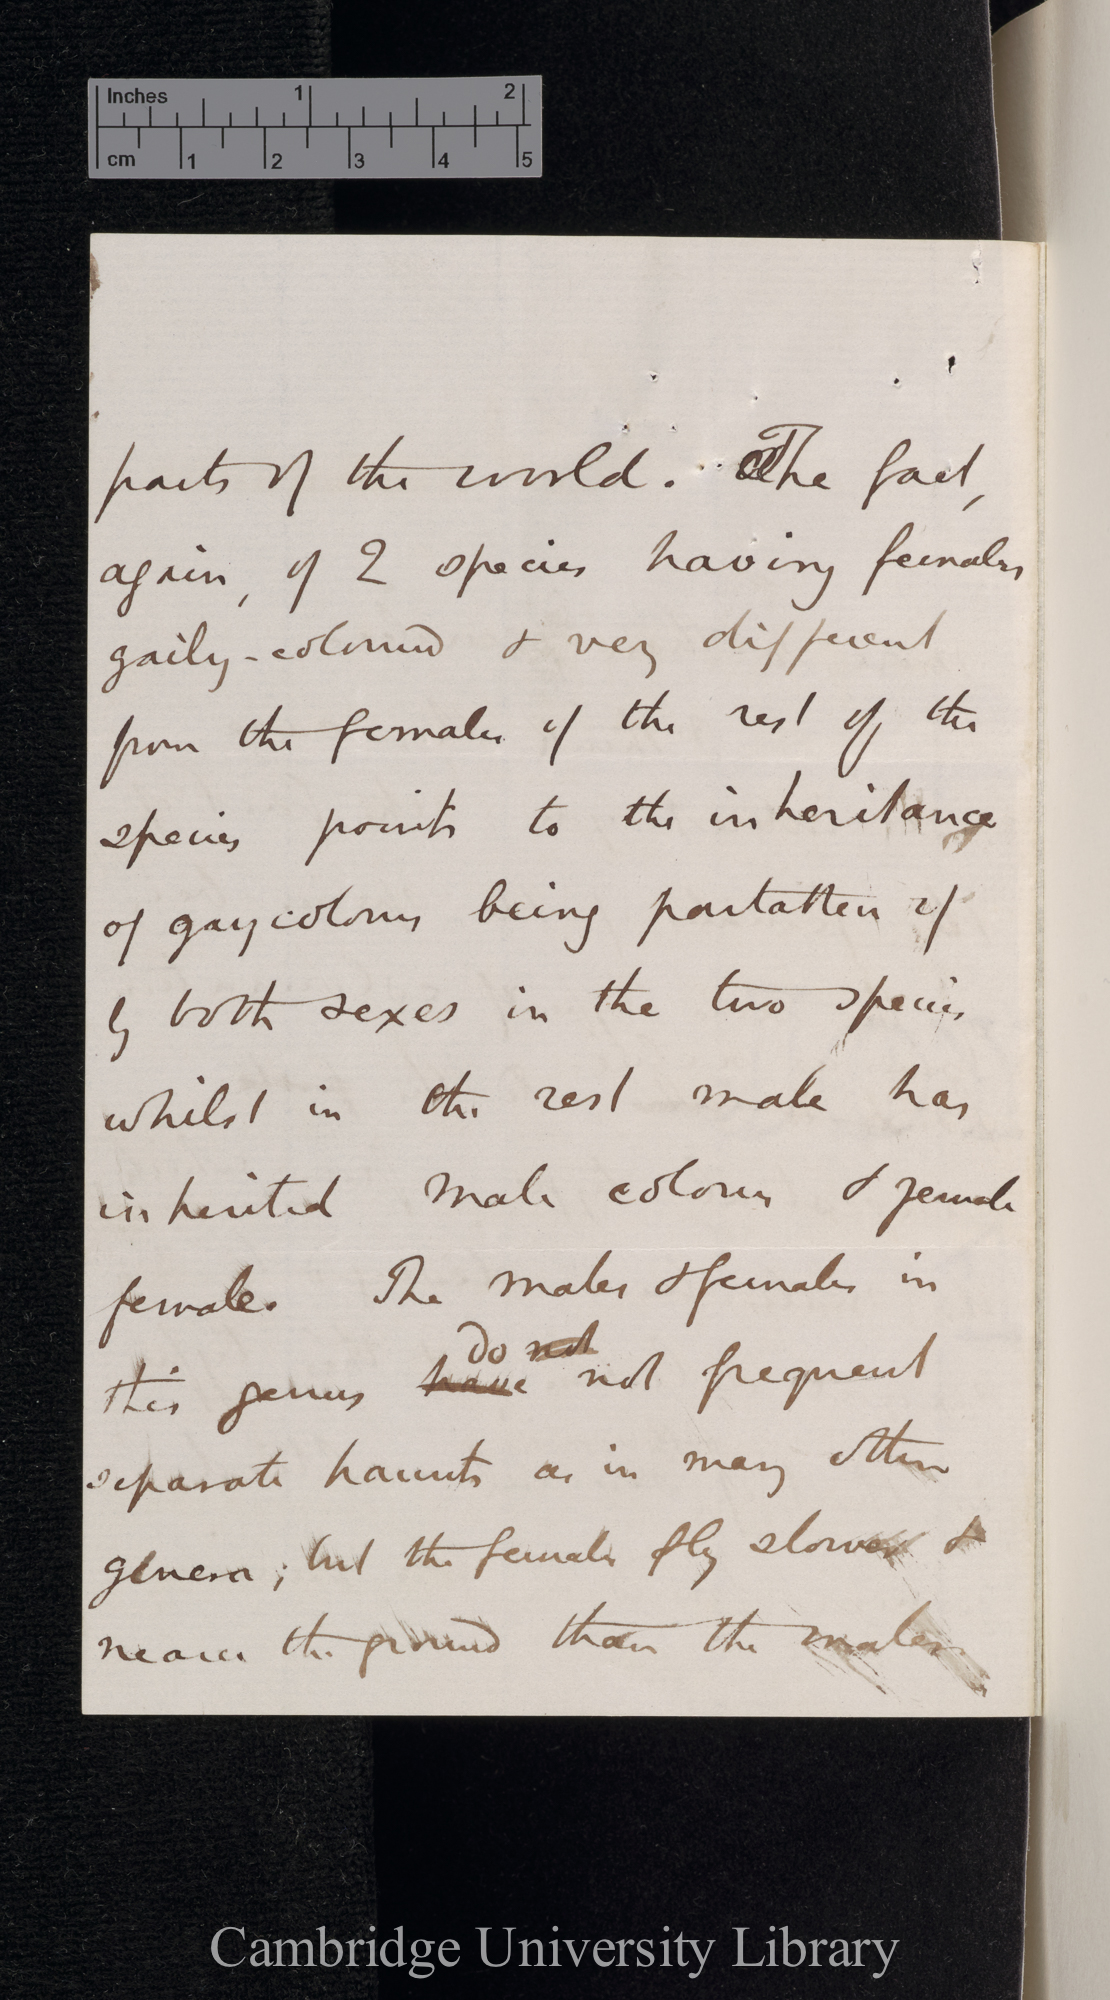 Inches 1 2
cm 1 2 3 4 5
parts of the world. The fact,
again, of 2 species having females
gaily-coloured & very different
from the females of the rest of the
species points to the inheritance
of gay colours being partaken of
by both sexes in the two species
whilst in the rest male has
inherited male colours & female
female. The males & females in
do not
this genus have not frequent
separate haunts as in many other
genera; but the females fly slower &
nearer the ground than the males.
Cambridge University Library